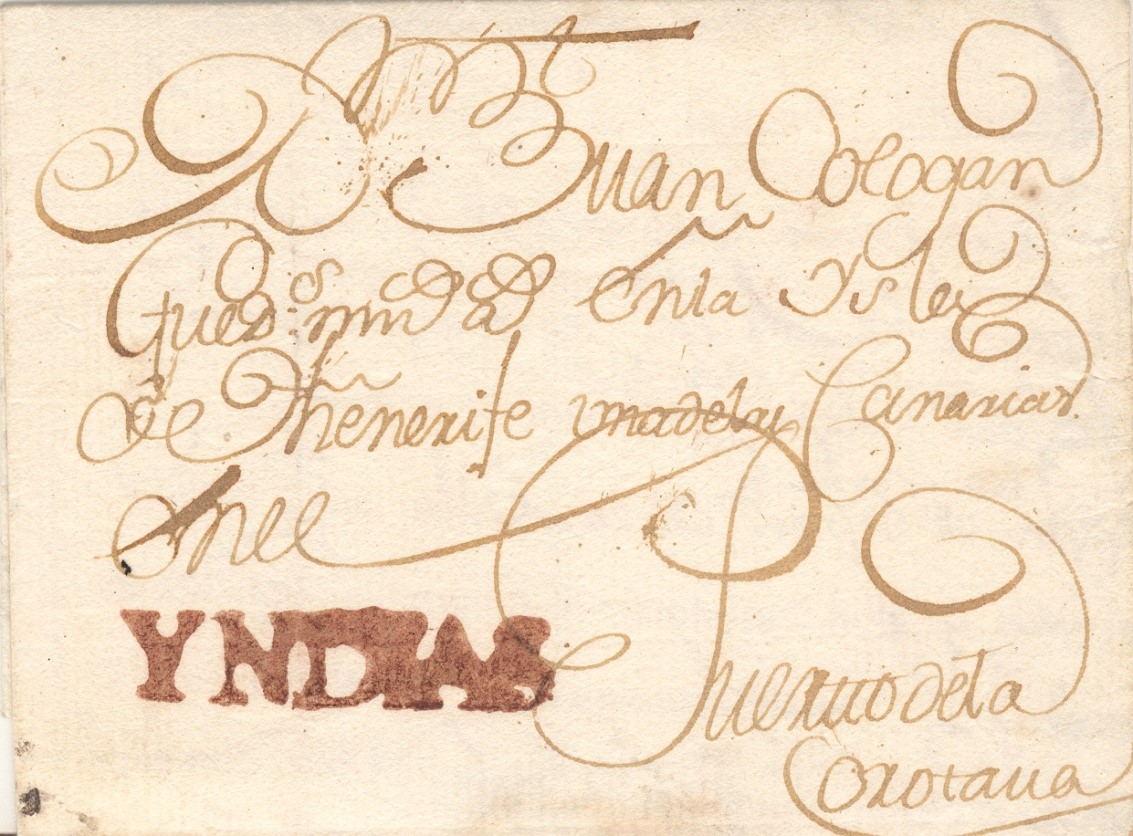 Juan Cologan
Que Ds. en la Ysla
de Thenerife una de las Canarias
en el
YNDIAS
Puerto de la
Orotava